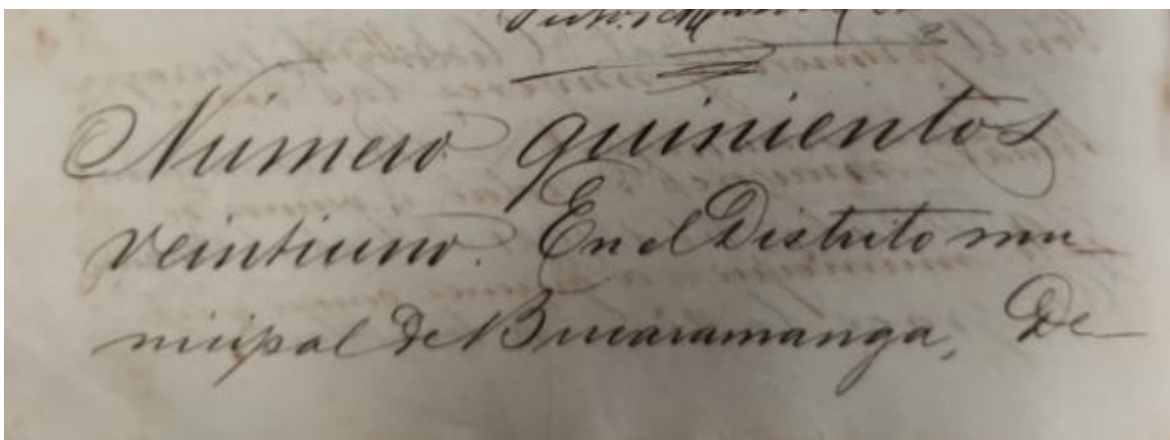 Número quinientos
veintiuno. En el Distrito mu-
nicipal de Bucaramanga, De-